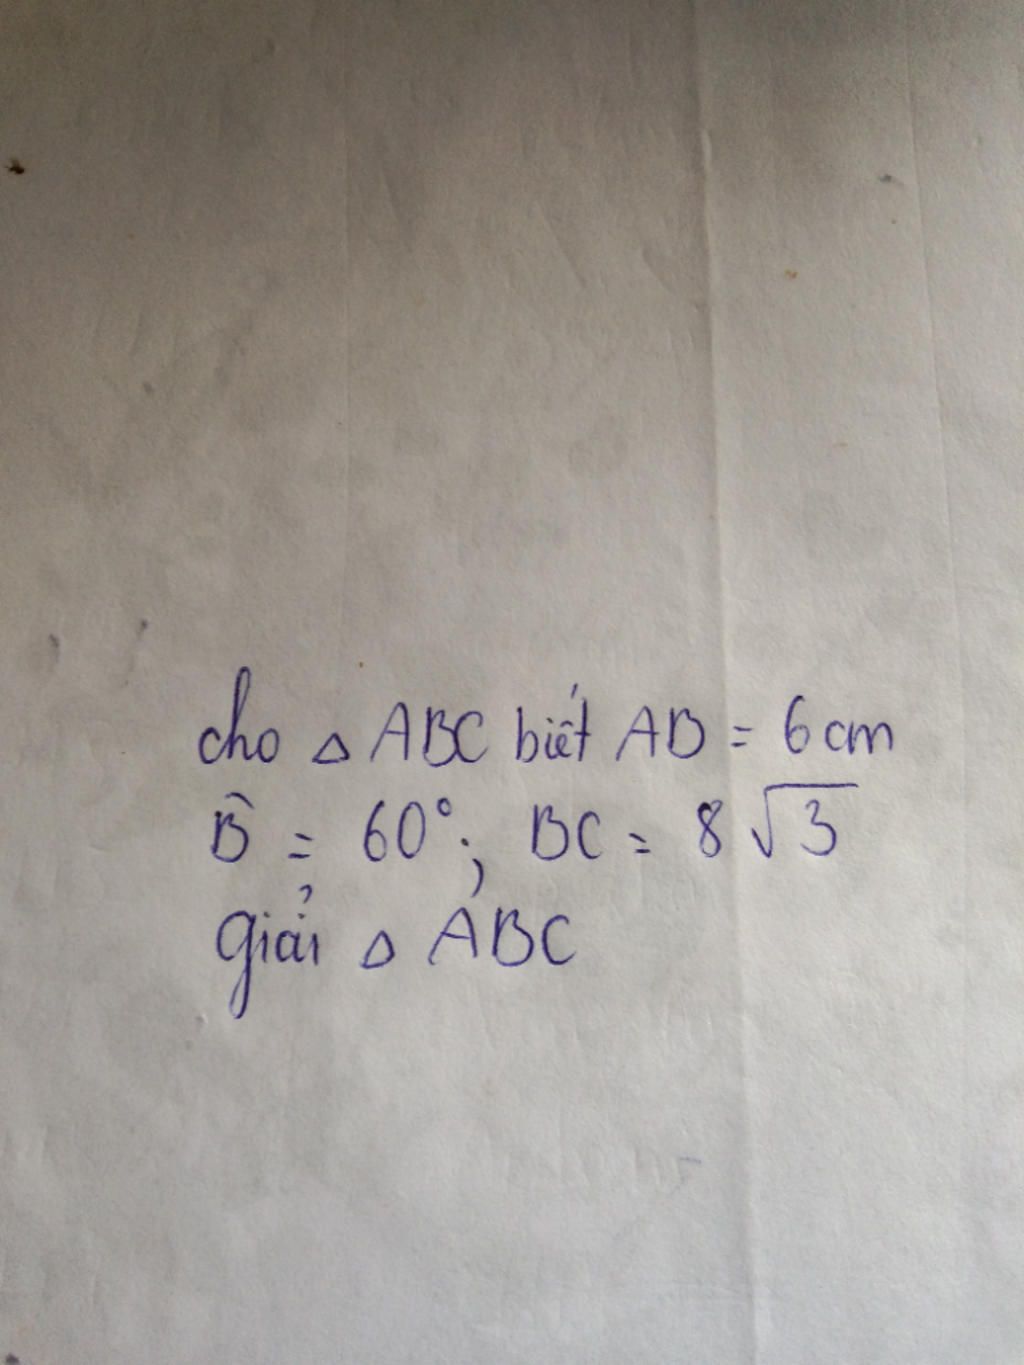 cho △ ABC biết AB = 6cm
B̂ = 60°; BC = 8√3
Giải △ ABC